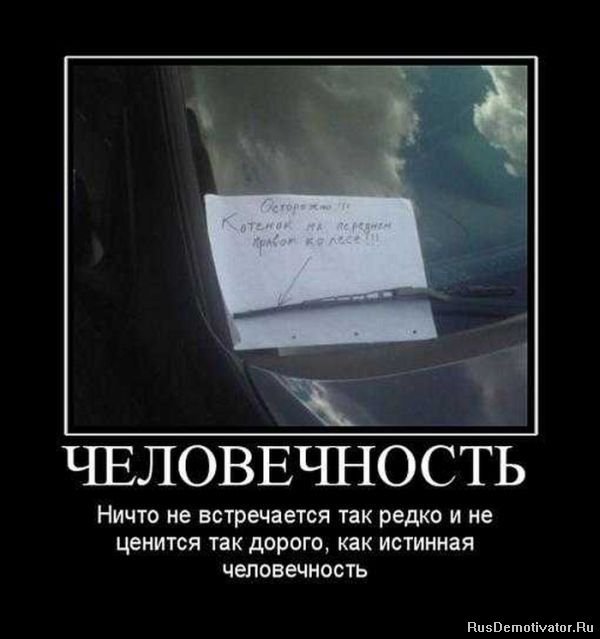 Осторожно !!!
Котенок на переднем
правом колесе!!!
ЧЕЛОВЕЧНОСТЬ
Ничто не встречается так редко и не
ценится так дорого, как истинная
человечность
RusDemotivator.Ru